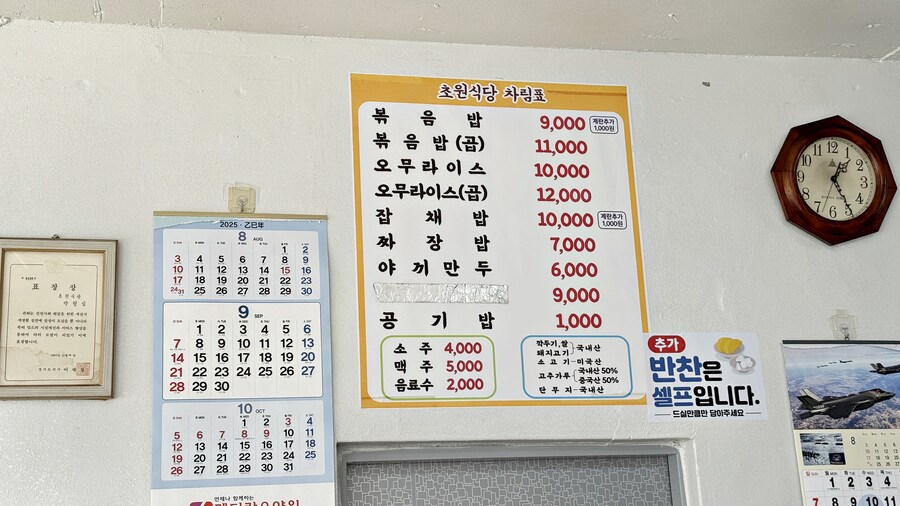 초원식당 차림표
볶음밥 9,000 계란추가 1,000원
볶음밥(곱) 11,000
오무라이스 10,000
오무라이스(곱) 12,000
잡채밥 10,000 계란추가 1,000원
짜장밥 7,000
야끼만두 6,000
9,000
공기밥 1,000
소주 4,000
맥주 5,000
음료수 2,000
깍두기,쌀
돼지고기 국내산
소고기-미국산
고추가루 국내산 50%
중국산 50%
단무지-국내산
추가
반찬은
셀프입니다.
드실만큼만 담아주세요
표창장
초원식당
2025·乙巳年
8 AUG
SUN MON TUE WED THU FRI SAT
1 2
3 4 5 6 7 8 9
10 11 12 13 14 15 16
17 18 19 20 21 22 23
24/31 25 26 27 28 29 30
9 SEP
SUN MON TUE WED THU FRI SAT
1 2 3 4 5 6
7 8 9 10 11 12 13
14 15 16 17 18 19 20
21 22 23 24 25 26 27
28 29 30
10 OCT
SUN MON TUE WED THU FRI SAT
1 2 3 4
5 6 7 8 9 10 11
12 13 14 15 16 17 18
19 20 21 22 23 24 25
26 27 28 29 30 31
언제나 함께하는
12 1 2 3 4 5 6 7 8 9 10 11
8
1 2 3 4
7 8 9 10 11